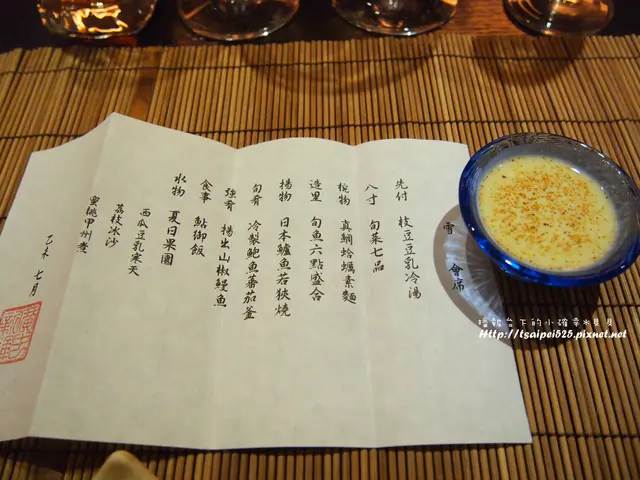 雪 會席
先付 枝豆豆乳冷湯
八寸 旬菜七品
椀物 真鯛蛤蠣素麵
造里 旬魚六點盛合
揚物 日本鱸魚若狹燒
旬肴 冷製鮑魚蕃茄釜
強肴 揚出山椒鰻魚
食事 鮎御飯
水物 夏日果園
西瓜豆乳寒天
荔枝冰沙
蜜桃甲州煮
乙未 七月
台下的小確幸水貝貝
Http://tsaipei525.pixnet.net